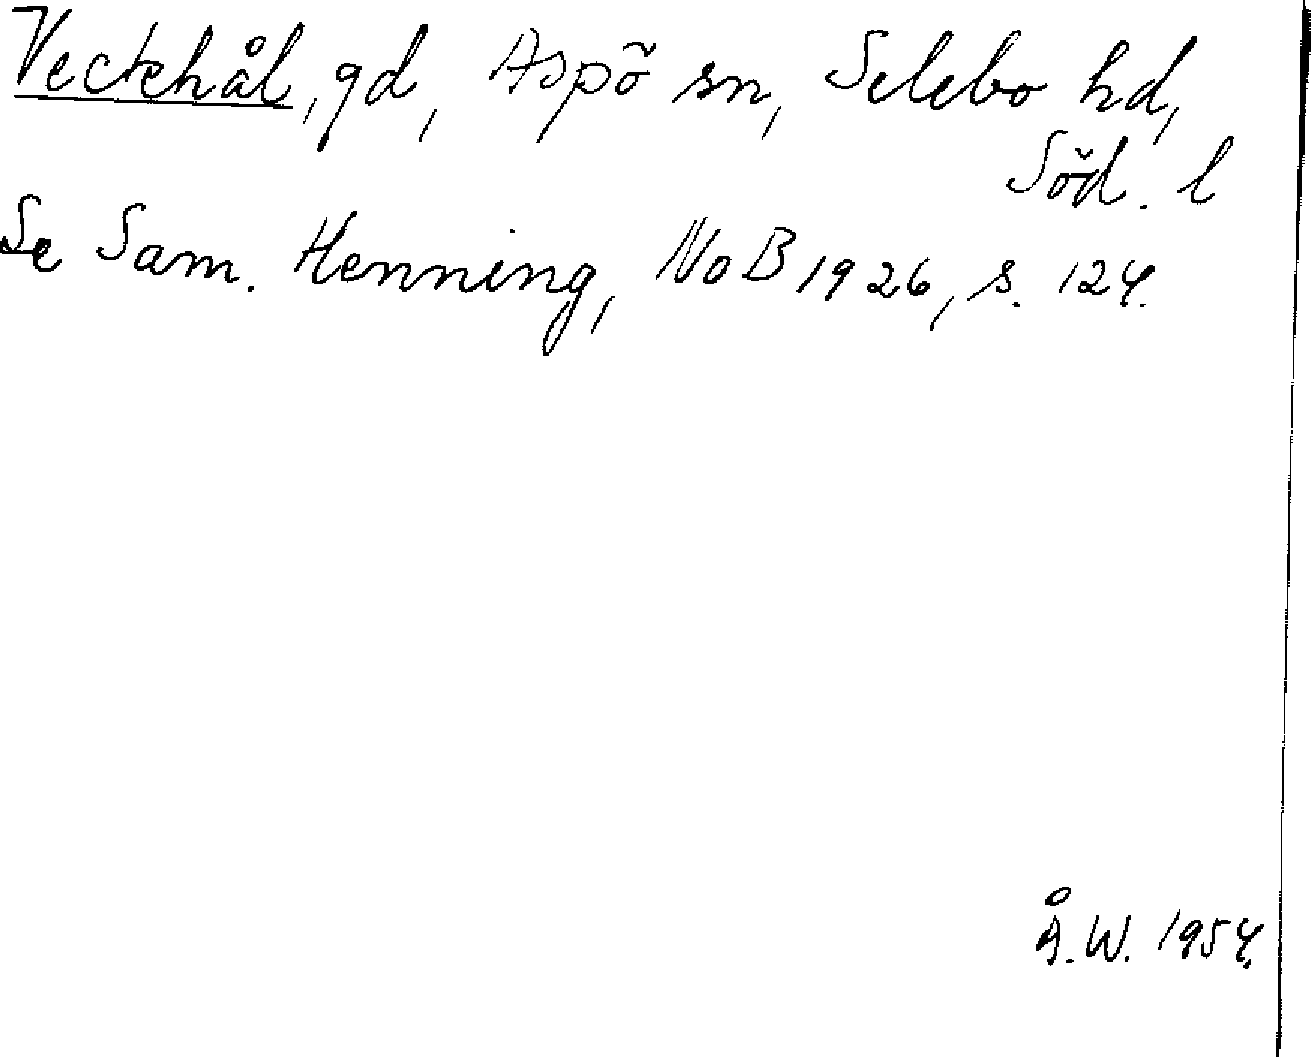 Vectehål, gd, Aspö sn, Selebo hd,
Söd. l
Se Sam. Henning, NoB 1926, s. 124.
Å.W. 1954.